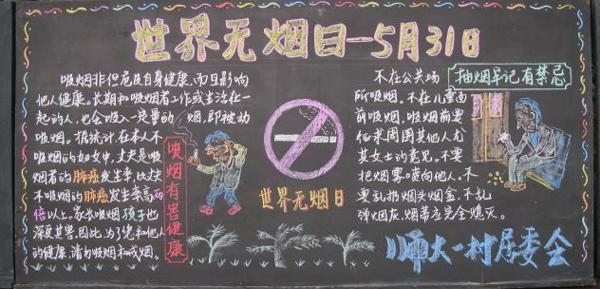 世界无烟日—5月31日
吸烟非但危及自身健康,而且影响
他人健康。长期和吸烟者工作或生活在一
起的人,也会吸入一定量的烟,即被动
吸烟。据统计在本人不
吸烟的妇女中,丈夫是吸
烟者的肺癌发生率,比丈夫
不吸烟的肺癌发生率高两
倍以上。家长吸烟孩子也
深受其害。因此,为了您和他人
的健康,请勿吸烟和戒烟。
吸烟有害健康
世界无烟日
抽烟早记有禁忌
不在公共场
所吸烟。不在儿童面
前吸烟。吸烟前要
征求周围其他人尤
其女士的意见。不要
把烟雾喷向他人。不
要乱扔烟头烟盒,不乱
弹烟灰。烟蒂应完全熄灭。
师大一村居委会